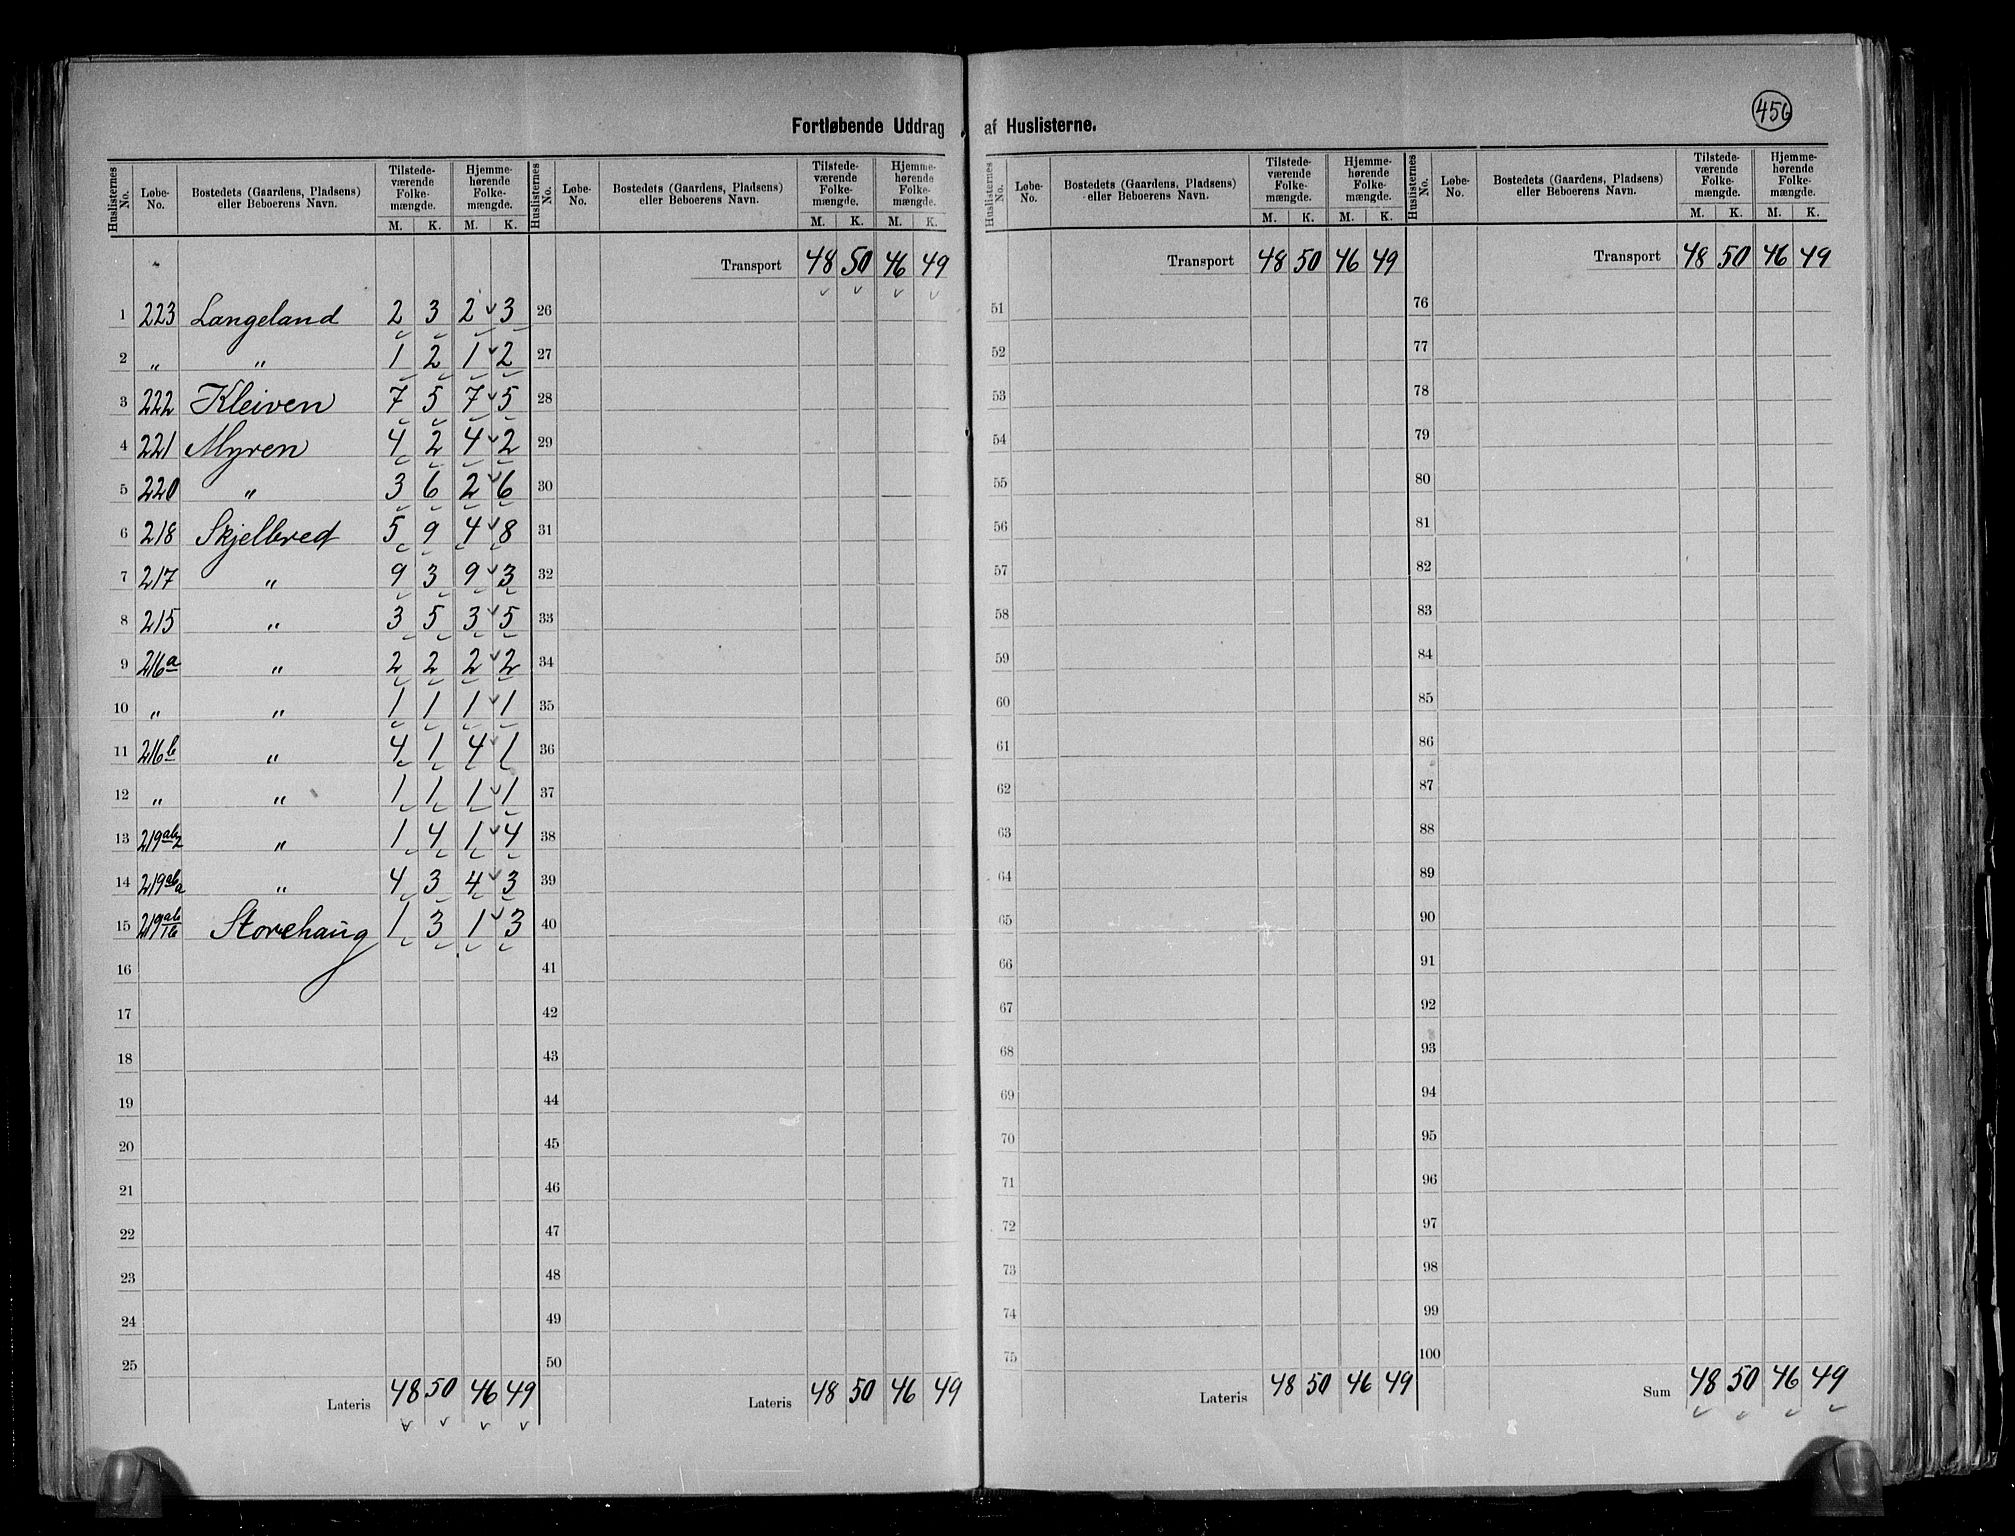 456
Fortløbende Uddrag af Huslisterne.
Huslisternes No. Løbe-No. Bostedets (Gaardens, Pladsens) eller Beboerens Navn. Tilstede-værende Folke-mængde. M. K. Hjemme-hørende Folke-mængde. M. K.
1 223 Langeland 2 3 2 3
2 " " 1 2 1 2
3 222 Kleiven 7 5 7 5
4 221 Myren 4 2 4 2
5 220 " 3 6 2 6
6 218 Skjelbred 5 9 4 8
7 217 " 9 3 9 3
8 215 " 3 5 3 5
9 216a " 2 2 2 2
10 " " 1 1 1 1
11 216b " 4 1 4 1
12 " " 1 1 1 1
13 219ab2 " 1 4 1 4
14 219aba " 4 3 4 3
15 219ab/1b Storehaug 1 3 1 3
16
17
18
19
20
21
22
23
24
25
Lateris 48 50 46 49
Huslisternes No. Løbe-No. Bostedets (Gaardens, Pladsens) eller Beboerens Navn. Tilstede-værende Folke-mængde. M. K. Hjemme-hørende Folke-mængde. M. K.
Transport 48 50 46 49
26
27
28
29
30
31
32
33
34
35
36
37
38
39
40
41
42
43
44
45
46
47
48
49
50
Lateris 48 50 46 49
Huslisternes No. Løbe-No. Bostedets (Gaardens, Pladsens) eller Beboerens Navn. Tilstede-værende Folke-mængde. M. K. Hjemme-hørende Folke-mængde. M. K.
Transport 48 50 46 49
51
52
53
54
55
56
57
58
59
60
61
62
63
64
65
66
67
68
69
70
71
72
73
74
75
Lateris 48 50 46 49
Huslisternes No. Løbe-No. Bostedets (Gaardens, Pladsens) eller Beboerens Navn. Tilstede-værende Folke-mængde. M. K. Hjemme-hørende Folke-mængde. M. K.
Transport 48 50 46 49
76
77
78
79
80
81
82
83
84
85
86
87
88
89
90
91
92
93
94
95
96
97
98
99
100
Sum 48 50 46 49